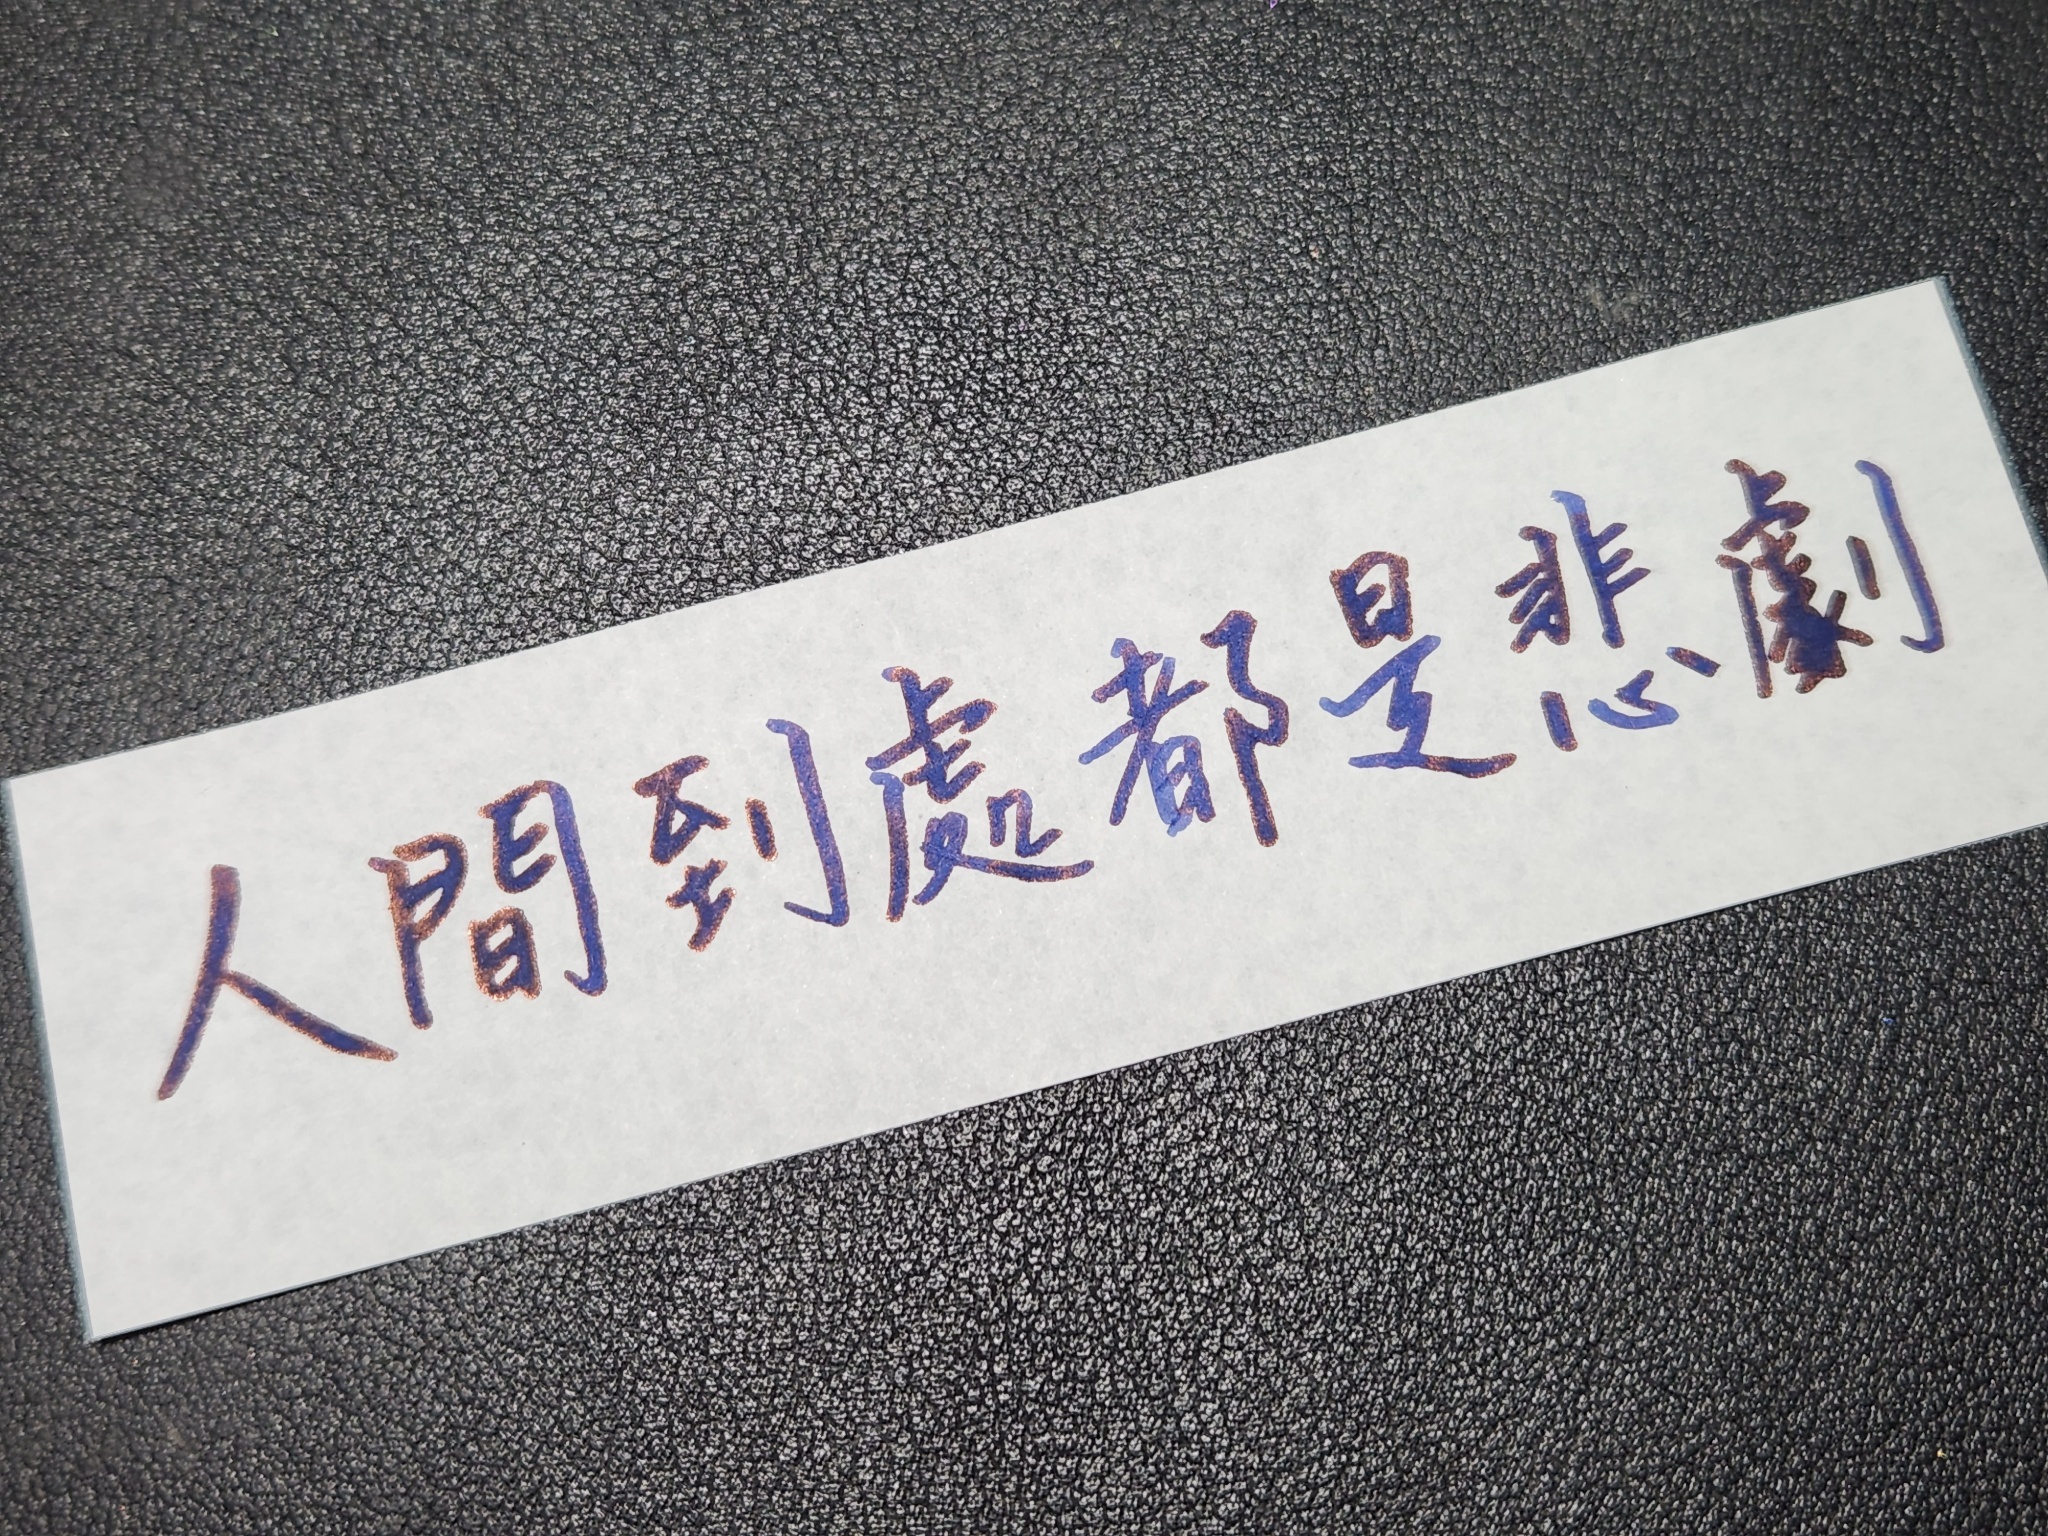 人間到處都是悲劇